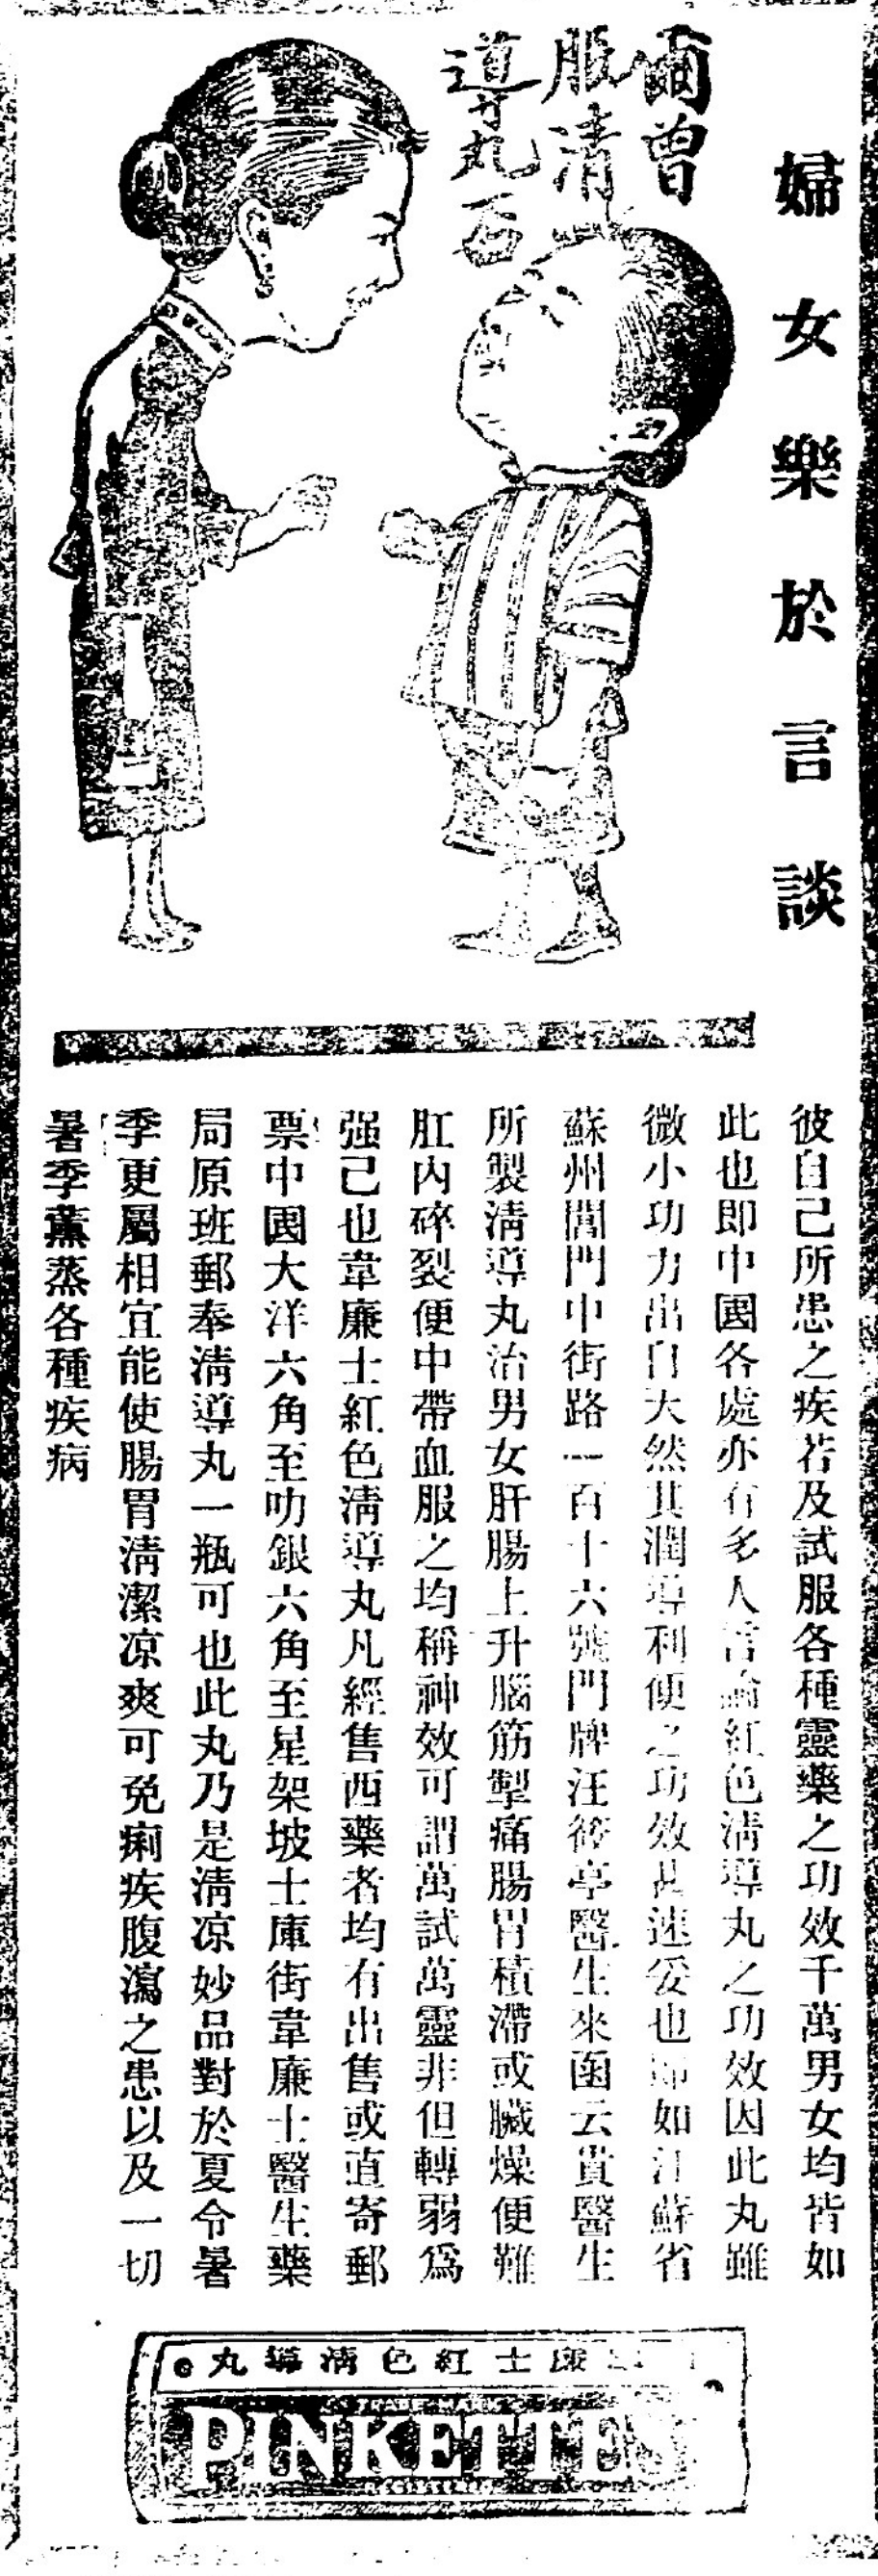 婦女樂於言談
爾曾
服清
導丸否
彼自己所患之疾若及試服各種靈藥之功效千萬男女均皆如
此也即中國各處亦有多人言論紅色清導丸之功效因此丸雖
微小功力出自天然其潤導利便之功效甚速妥也即如江蘇省
蘇州閶門中街路一百十六號門牌汪 亭醫生來函云貴醫生
所製清導丸治男女肝腸上升腦筋掣痛腸胃積滯或臟燥便難
肛內碎裂便中帶血服之均稱神效可謂萬試萬靈非但轉弱爲
强己也韋廉士紅色清導丸凡經售西藥者均有出售或直寄郵
票中國大洋六角至叻銀六角至星架坡士庫街韋廉士醫生藥
局原班郵奉清導丸一瓶可也此丸乃是清凉妙品對於夏令暑
季更屬相宜能使腸胃清潔凉爽可免痢疾腹瀉之患以及一切
暑季薰蒸各種疾病
丸導清色紅士廉
TRADE MARK
PINKETTES
REGISTERED